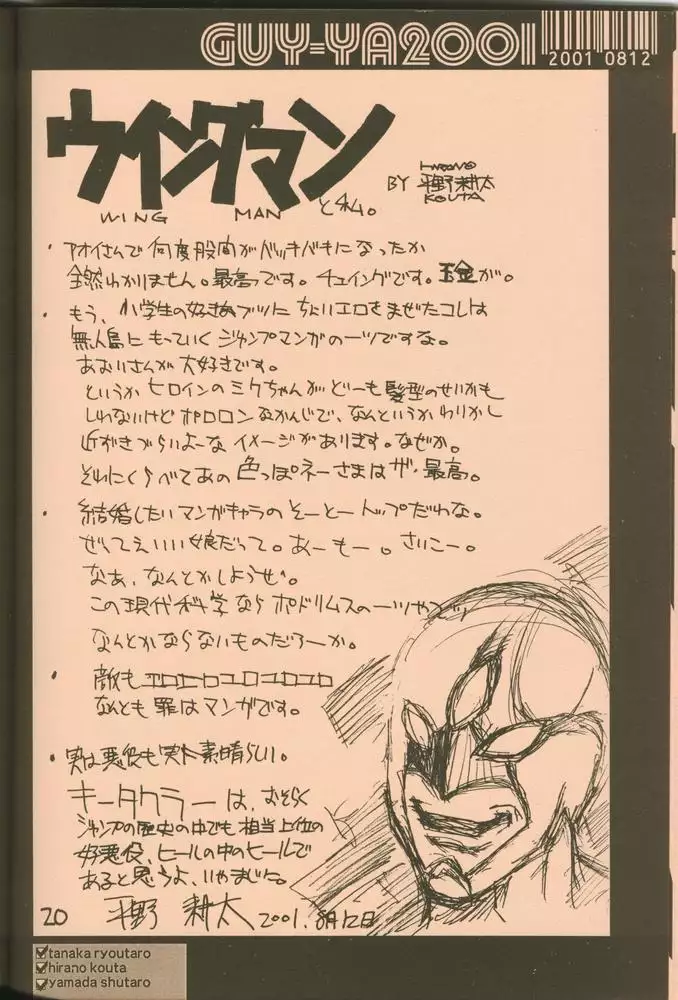 GUY-YA2001
2001 0812
ウイングマン
WING MAN と私。
BY 平野耕太
HIRANO KOUTA
・アオイさんで何度股間がバッキバキになったか
全然わかりません。最高です。チュイングです。玉金が。
・もう、小学生の好きなブツに ちょいエロをまぜたコレは
無人島にもっていくジャンプマンガの一ツですな。
あおいさんが大好きです。
というか ヒロインのミクちゃんがどーも髪型のせいかも
しれないけど ポロロンなかんじで、なんというか わりかし
近づきづらいよーな イメージがあります。なぜか。
それにくらべてあの色っぽネーさまはザ・最高。
・結婚したいマンガキャラのそーとートップだわな。
ぜってえいい娘だって。あーもー。さいこー。
なあ、なんとかしようぜ。
この現代科学ならポドリムスの一ツや二ツ
なんとかならないものだろーか。
・敵もエロエロユロユロユロ
なんとも罪はマンガです。
・実は悪役も実に素晴らしい。
キータクラーは、おそらく
ジャンプの歴史の中でも相当上位の
好悪役、ヒールの中のヒールで
あると思うよ、いやまじで。
平野 耕太 2001.8月12日
20
tanaka ryoutaro
hirano kouta
yamada shutaro